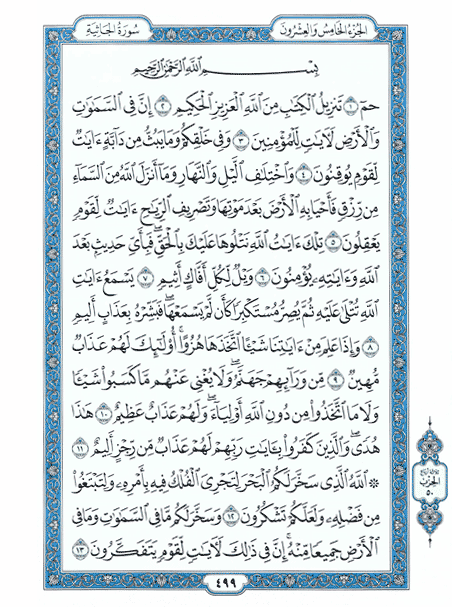 سُورَةُ الجَاثِيَة
الجُزْءُ الخَامِسُ وَالعِشْرُونَ
بِسْمِ اللَّهِ الرَّحْمَٰنِ الرَّحِيمِ
حمٓ ١ تَنزِيلُ الْكِتَٰبِ مِنَ اللَّهِ الْعَزِيزِ الْحَكِيمِ ٢ إِنَّ فِى السَّمَٰوَٰتِ
وَالْأَرْضِ لَءَايَٰتٍ لِّلْمُؤْمِنِينَ ٣ وَفِى خَلْقِكُمْ وَمَا يَبُثُّ مِن دَآبَّةٍ ءَايَٰتٌ
لِّقَوْمٍ يُوقِنُونَ ٤ وَاخْتِلَٰفِ الَّيْلِ وَالنَّهَارِ وَمَآ أَنزَلَ اللَّهُ مِنَ السَّمَآءِ
مِن رِّزْقٍ فَأَحْيَا بِهِ الْأَرْضَ بَعْدَ مَوْتِهَا وَتَصْرِيفِ الرِّيَٰحِ ءَايَٰتٌ لِّقَوْمٍ
يَعْقِلُونَ ٥ تِلْكَ ءَايَٰتُ اللَّهِ نَتْلُوهَا عَلَيْكَ بِالْحَقِّ ۖ فَبِأَىِّ حَدِيثٍۭ بَعْدَ
اللَّهِ وَءَايَٰتِهِۦ يُؤْمِنُونَ ٦ وَيْلٌ لِّكُلِّ أَفَّاكٍ أَثِيمٍ ٧ يَسْمَعُ ءَايَٰتِ
اللَّهِ تُتْلَىٰ عَلَيْهِ ثُمَّ يُصِرُّ مُسْتَكْبِرًا كَأَن لَّمْ يَسْمَعْهَا ۖ فَبَشِّرْهُ بِعَذَابٍ أَلِيمٍ
٨ وَإِذَا عَلِمَ مِنْ ءَايَٰتِنَا شَيْـًٔا اتَّخَذَهَا هُزُوًا ۚ أُو۟لَٰٓئِكَ لَهُمْ عَذَابٌ
مُّهِينٌ ٩ مِّن وَرَآئِهِمْ جَهَنَّمُ ۖ وَلَا يُغْنِى عَنْهُم مَّا كَسَبُوا۟ شَيْـًٔا
وَلَا مَا اتَّخَذُوا۟ مِن دُونِ اللَّهِ أَوْلِيَآءَ ۖ وَلَهُمْ عَذَابٌ عَظِيمٌ ١٠ هَٰذَا
هُدًى ۖ وَالَّذِينَ كَفَرُوا۟ بِـَٔايَٰتِ رَبِّهِمْ لَهُمْ عَذَابٌ مِّن رِّجْزٍ أَلِيمٌ ١١
۞ اللَّهُ الَّذِى سَخَّرَ لَكُمُ الْبَحْرَ لِتَجْرِىَ الْفُلْكُ فِيهِ بِأَمْرِهِۦ وَلِتَبْتَغُوا۟
مِن فَضْلِهِۦ وَلَعَلَّكُمْ تَشْكُرُونَ ١٢ وَسَخَّرَ لَكُم مَّا فِى السَّمَٰوَٰتِ وَمَا فِى
الْأَرْضِ جَمِيعًا مِّنْهُ ۚ إِنَّ فِى ذَٰلِكَ لَءَايَٰتٍ لِّقَوْمٍ يَتَفَكَّرُونَ ١٣
الحزب
٥٠
٤٩٩